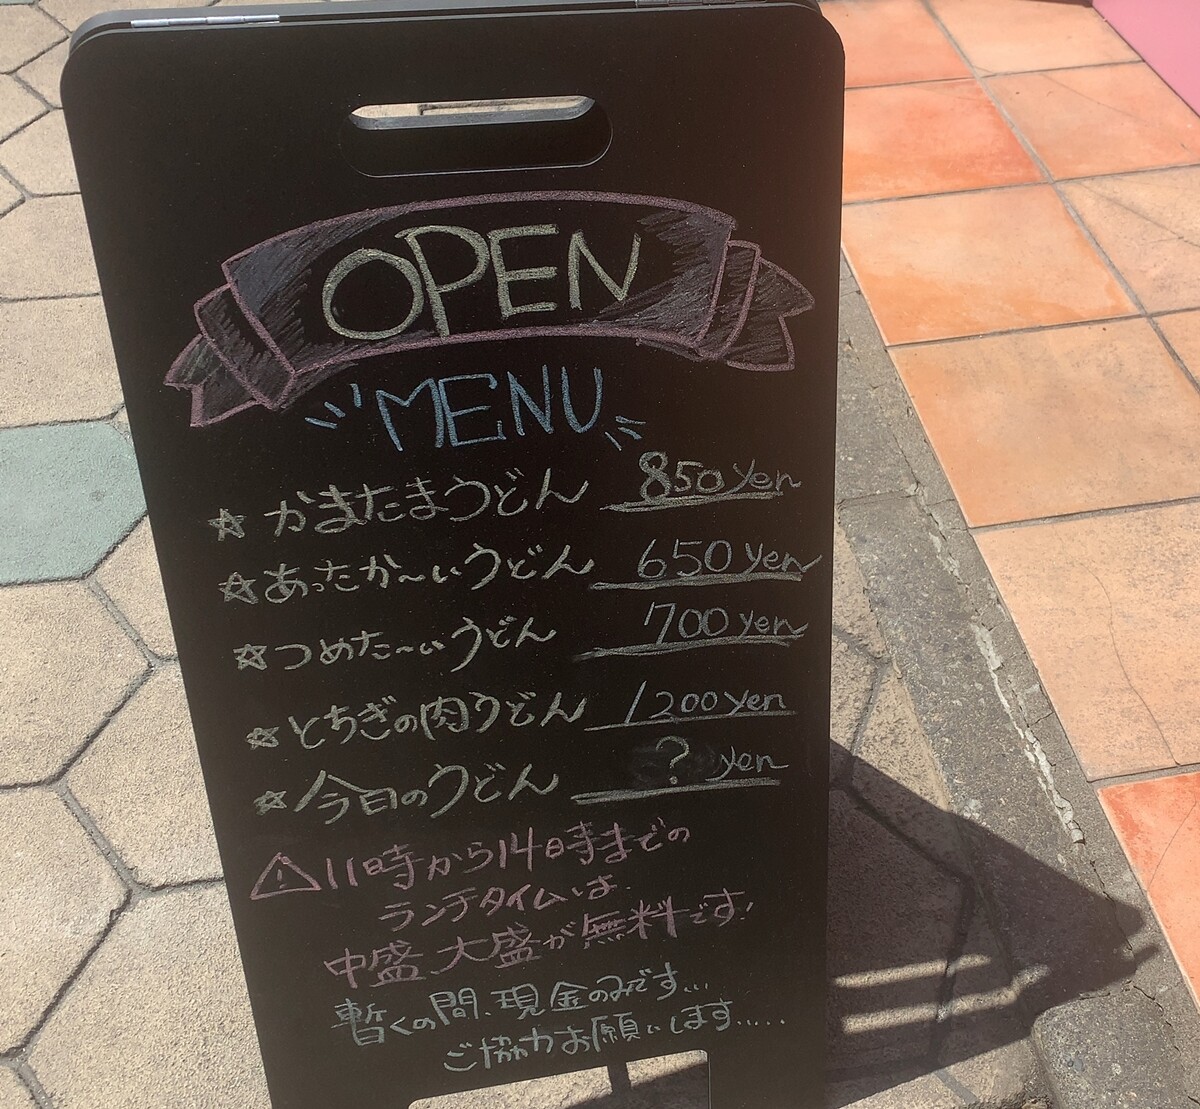 OPEN
MENU
☆ かまたまうどん 850yen
☆ あったか〜いうどん 650yen
☆ つめた〜いうどん 700yen
☆ とちぎの肉うどん 1200yen
☆ 今日のうどん ? yen
⚠ 11時から14時までの
ランチタイムは
中盛 大盛が無料です!
暫くの間、現金のみです...
ご協力お願いします.....